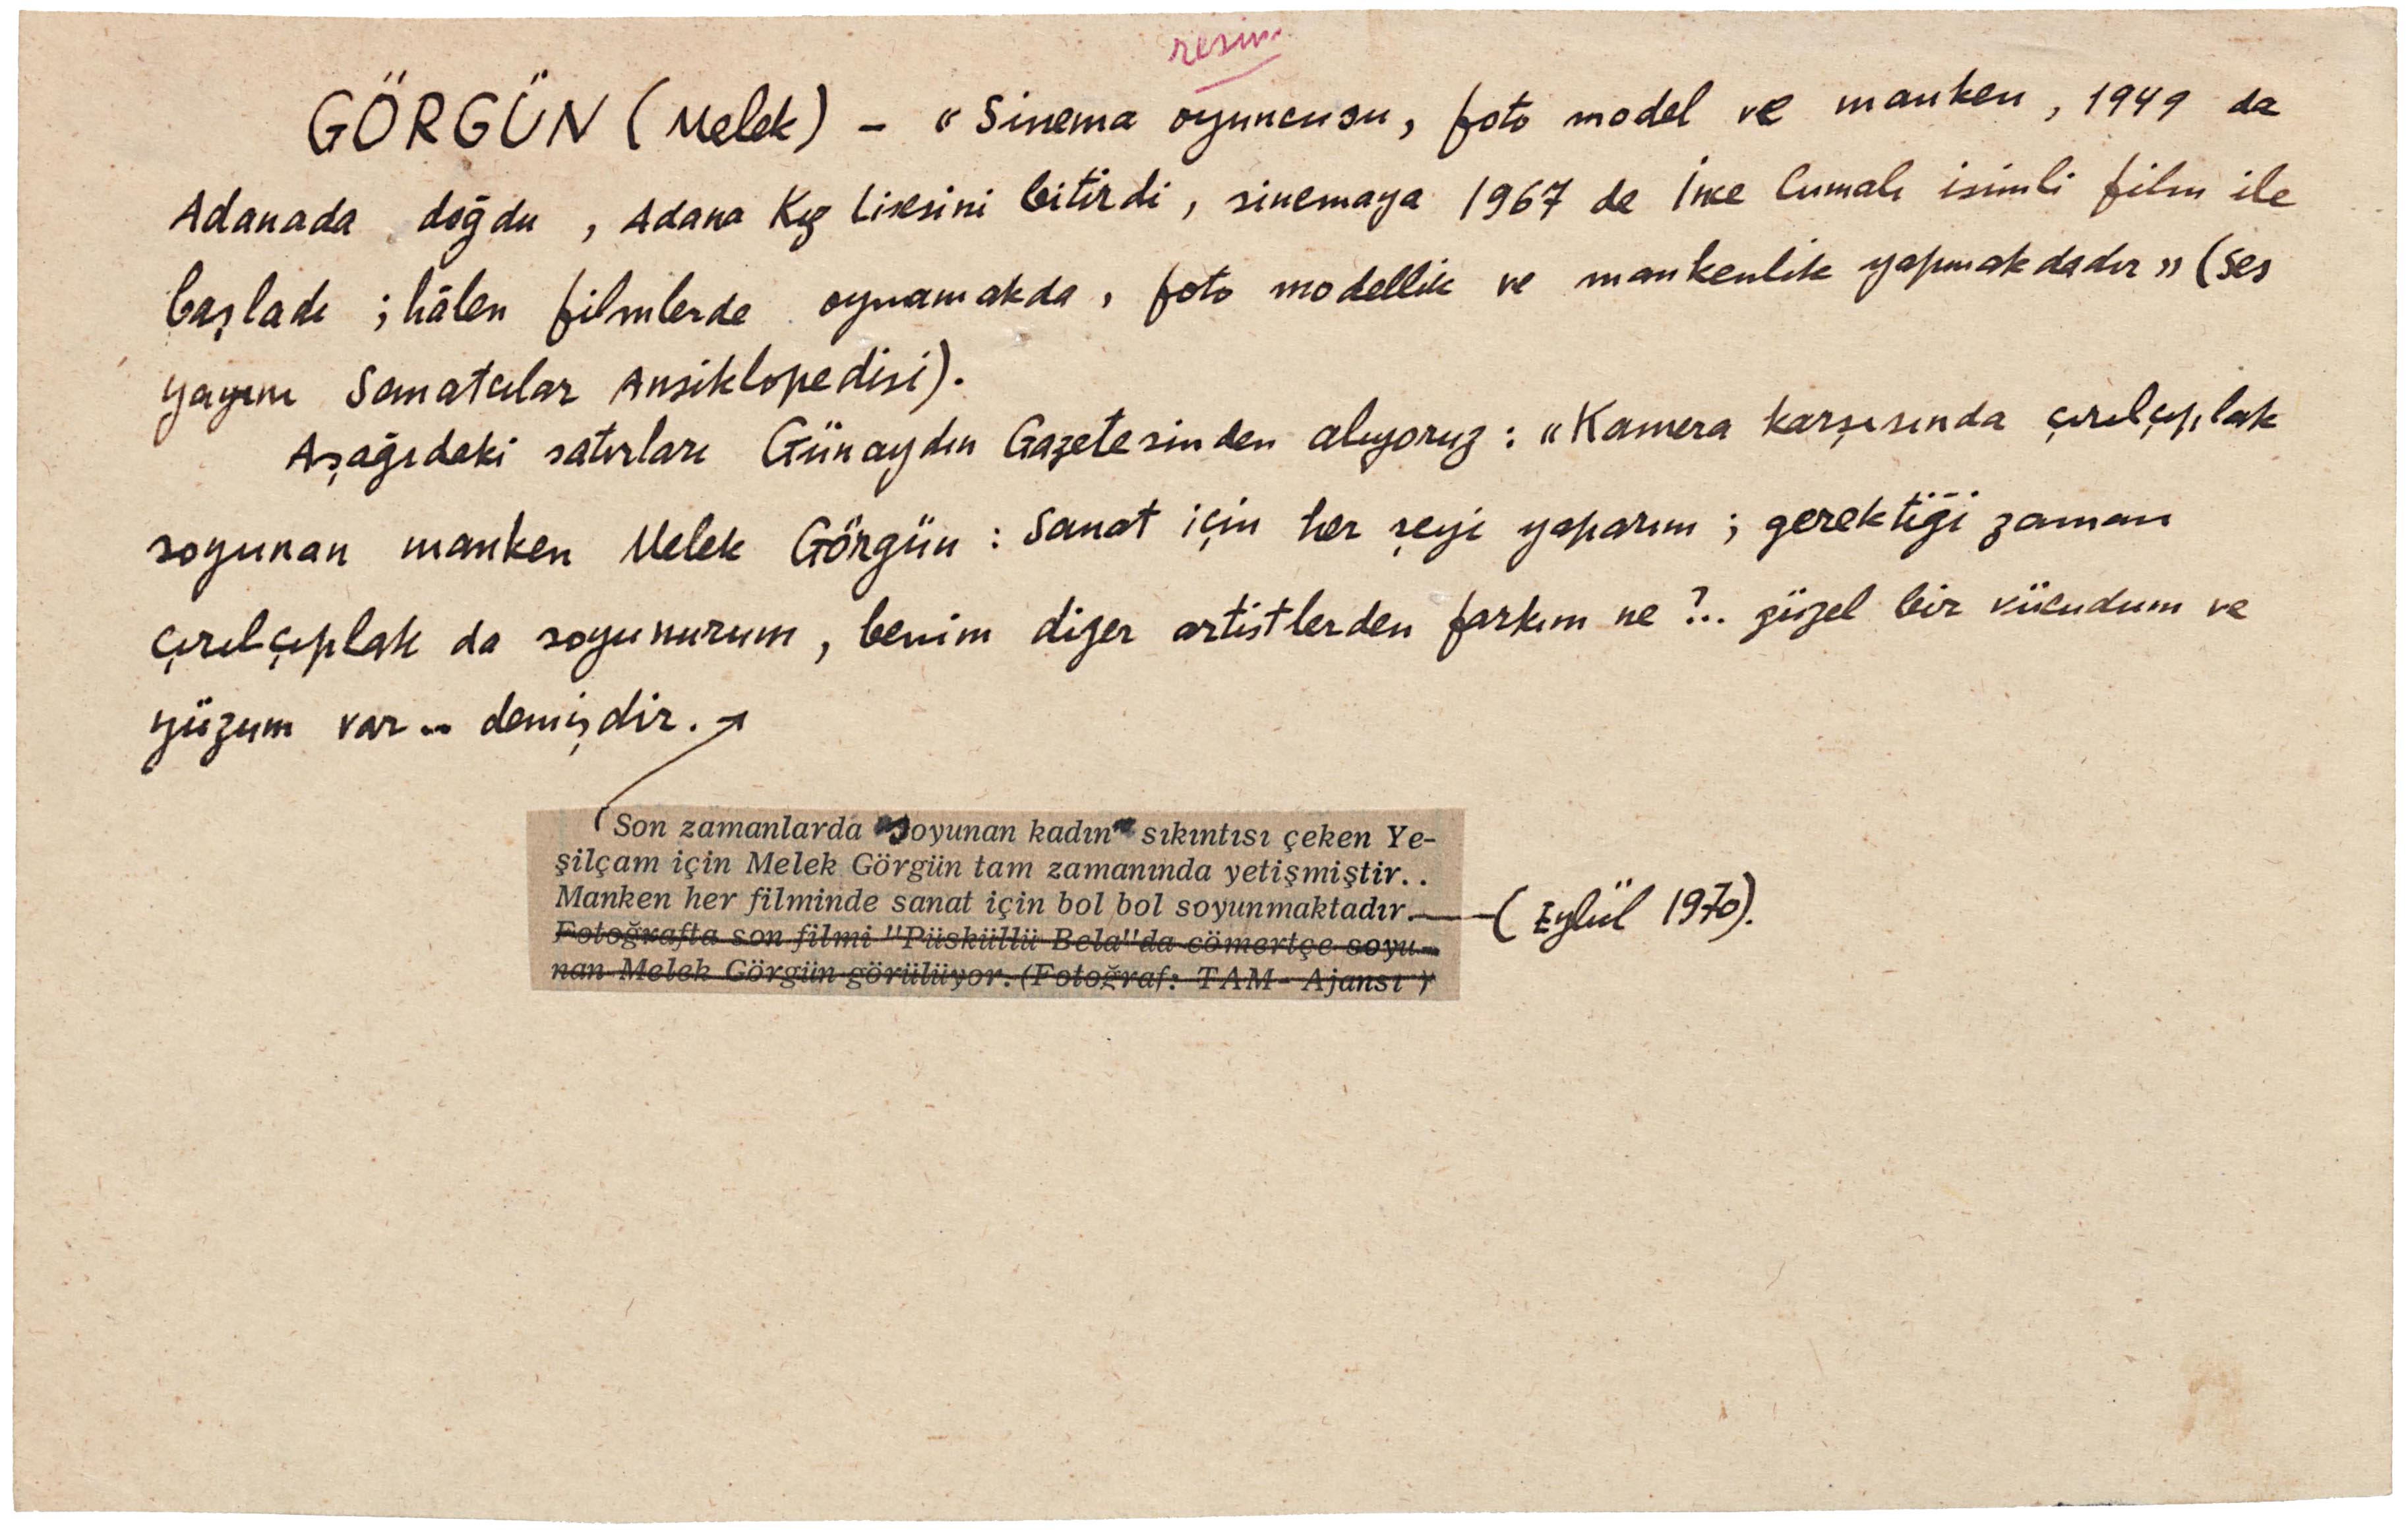 resim
GÖRGÜN (Melek) – "Sinema oyuncusu, foto model ve manken, 1949 da
Adanada doğdu, Adana Kız Lisesini bitirdi, sinemaya 1967 de İnce Cumalı isimli film ile
başladı ; hâlen filmlerde oynamakda, foto modellik ve mankenlik yapmakdadır" (Ses
yayını Sanatcılar Ansiklopedisi).
Aşağıdaki satırları Günaydın Gazetesinden alıyoruz : "Kamera karşısında çırılçıplak
soyunan manken Melek Görgün : Sanat için her şeyi yaparım ; gerektiği zaman
çırılçıplak da soyunurum, benim diğer artistlerden farkım ne ?.. güzel bir vücudum ve
yüzüm var .. demişdir.
Son zamanlarda "Soyunan kadın" sıkıntısı çeken Ye-
şilçam için Melek Görgün tam zamanında yetişmiştir..
Manken her filminde sanat için bol bol soyunmaktadır. (Eylül 1970).
Fotoğrafta son filmi "Püsküllü Bela"da cömertçe soyu-
nan Melek Görgün görülüyor. (Fotoğraf: TAM- Ajansı )